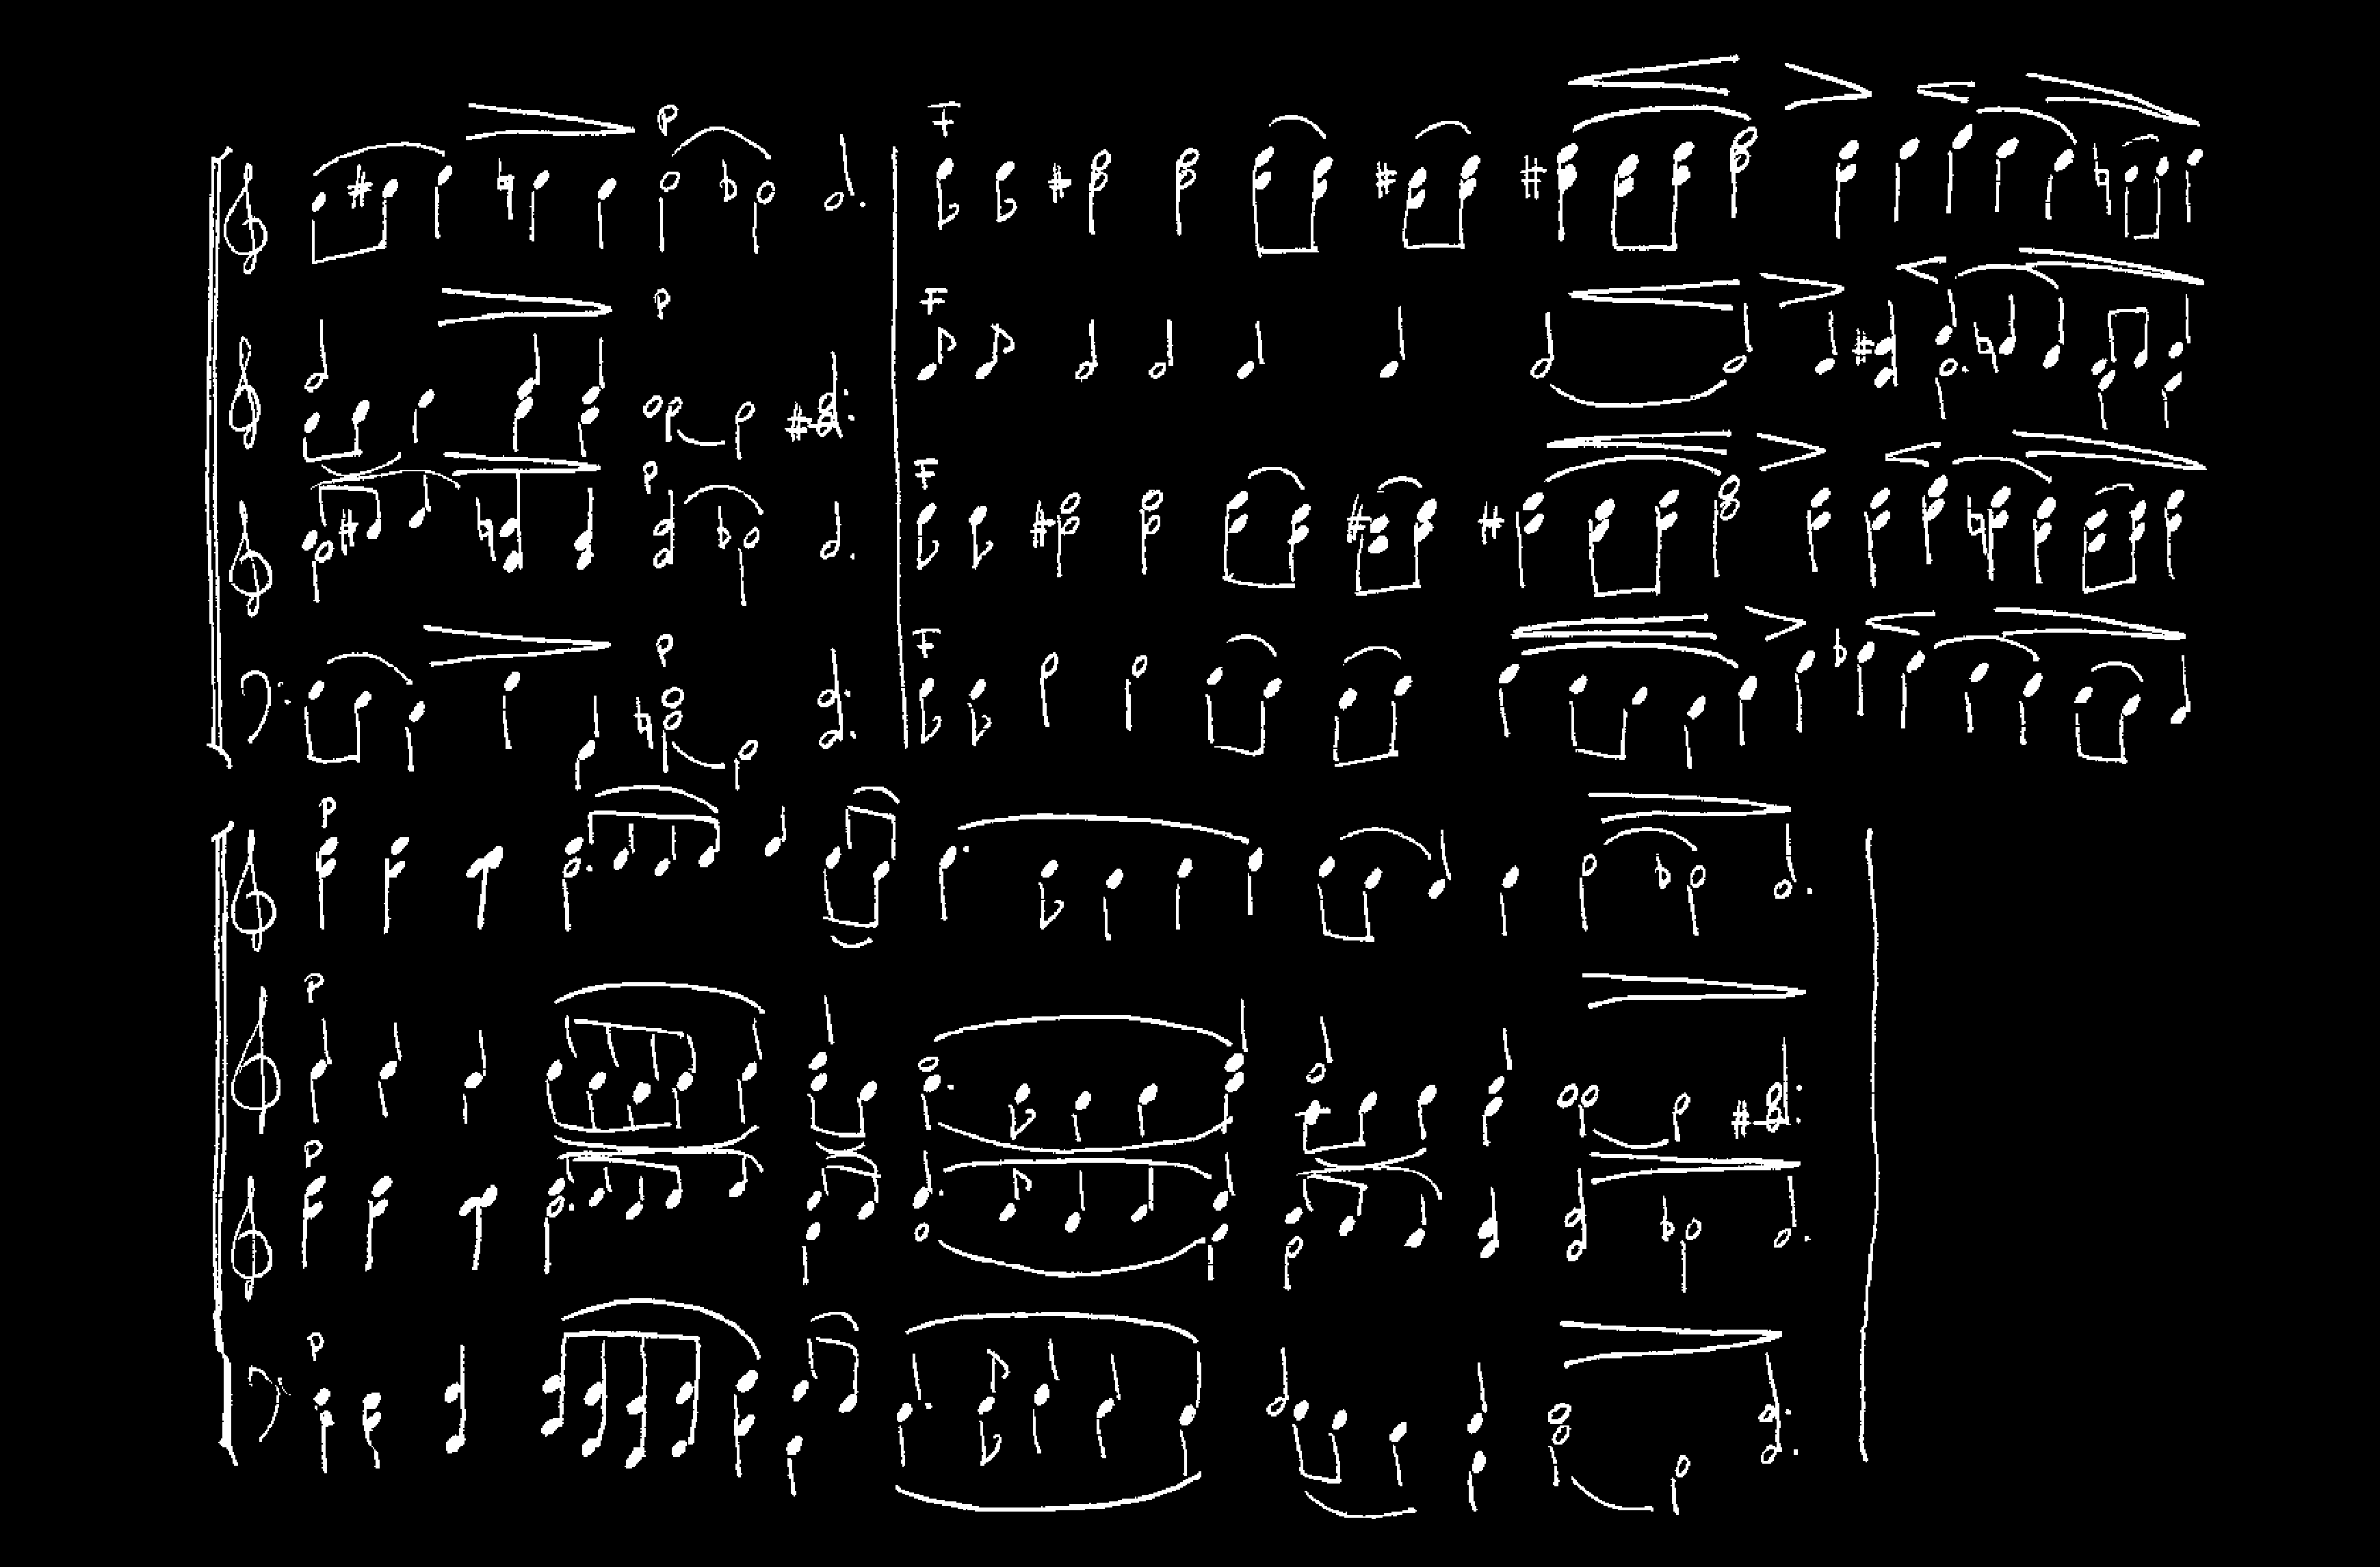 p F
p F
p F
p F
p
p
p
p